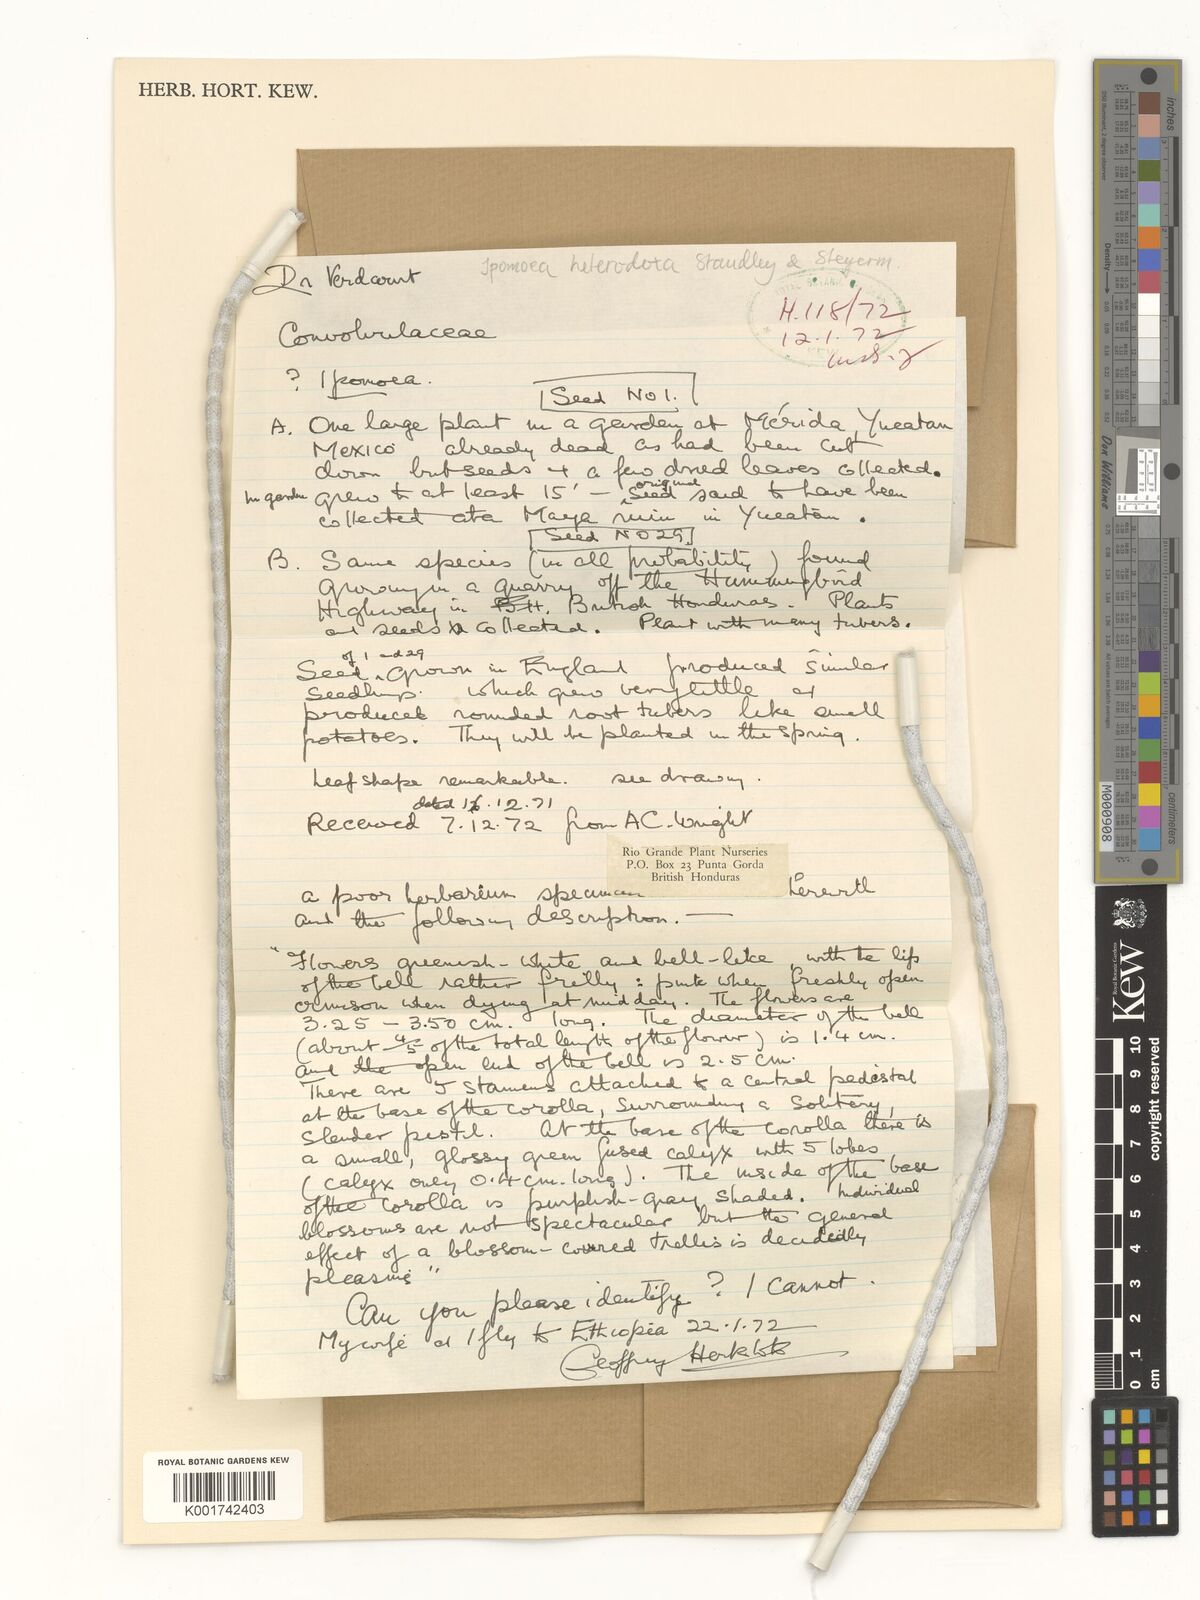 HERB. HORT. KEW.
Ipomoea heterodoxa Standley & Steyerm.
Dr Verdcourt
H.118/72
12.1.72
KEW
Convolvulaceae
? Ipomoea.
Seed No 1.
A. One large plant in a garden at Mérida, Yucatan
Mexico already dead as had been cut
down but seeds + a few dried leaves collected.
In garden grew to at least 15' — original Seed said to have been
collected at a Maya ruin in Yucatan.
Seed NO 29
B. Same species (in all probability) found
growing in a quarry off the Hummingbird
Highway in B.H. British Honduras. Plants
and seeds collected. Plant with many tubers.
Seed of 1 and 29 grown in England produced similar
seedlings which grew very little &
produced rounded root tubers like small
potatoes. They will be planted in the spring.
Leaf shape remarkable. see drawing.
dated 16.12.71
Received 7.12.72 from A.C. Wright
Rio Grande Plant Nurseries
P.O. Box 23 Punta Gorda
British Honduras
a poor herbarium specimen herewith
and the following description. —
"Flowers greenish-white and bell-like, with the lip
of the bell rather frilly: pink when freshly open
crimson when dying at midday. The flowers are
3.25 – 3.50 cm. long. The diameter of the bell
(about 4/5 of the total length of the flower) is 1.4 cm.
and the open end of the bell is 2.5 cm.
There are 5 stamens attached to a central pedestal
at the base of the corolla, surrounding a solitary,
slender pistil. At the base of the corolla there is
a small, glossy green fused calyx with 5 lobes
(calyx only 0.4 cm. long). The inside of the base
of the corolla is purplish-gray shaded. Individual
blossoms are not spectacular but the general
effect of a blossom-covered trellis is decidedly
pleasing"
Can you please identify? I cannot.
My wife & I fly to Ethiopia 22.1.72
Geoffrey Herklots
ROYAL BOTANIC GARDENS KEW
K001742403
inches
centimetres
Density
Don Williams
M000908
Royal Botanic Gardens
Kew
copyright reserved
0 1 2 3 4 5 6 7 8 9 10
cm